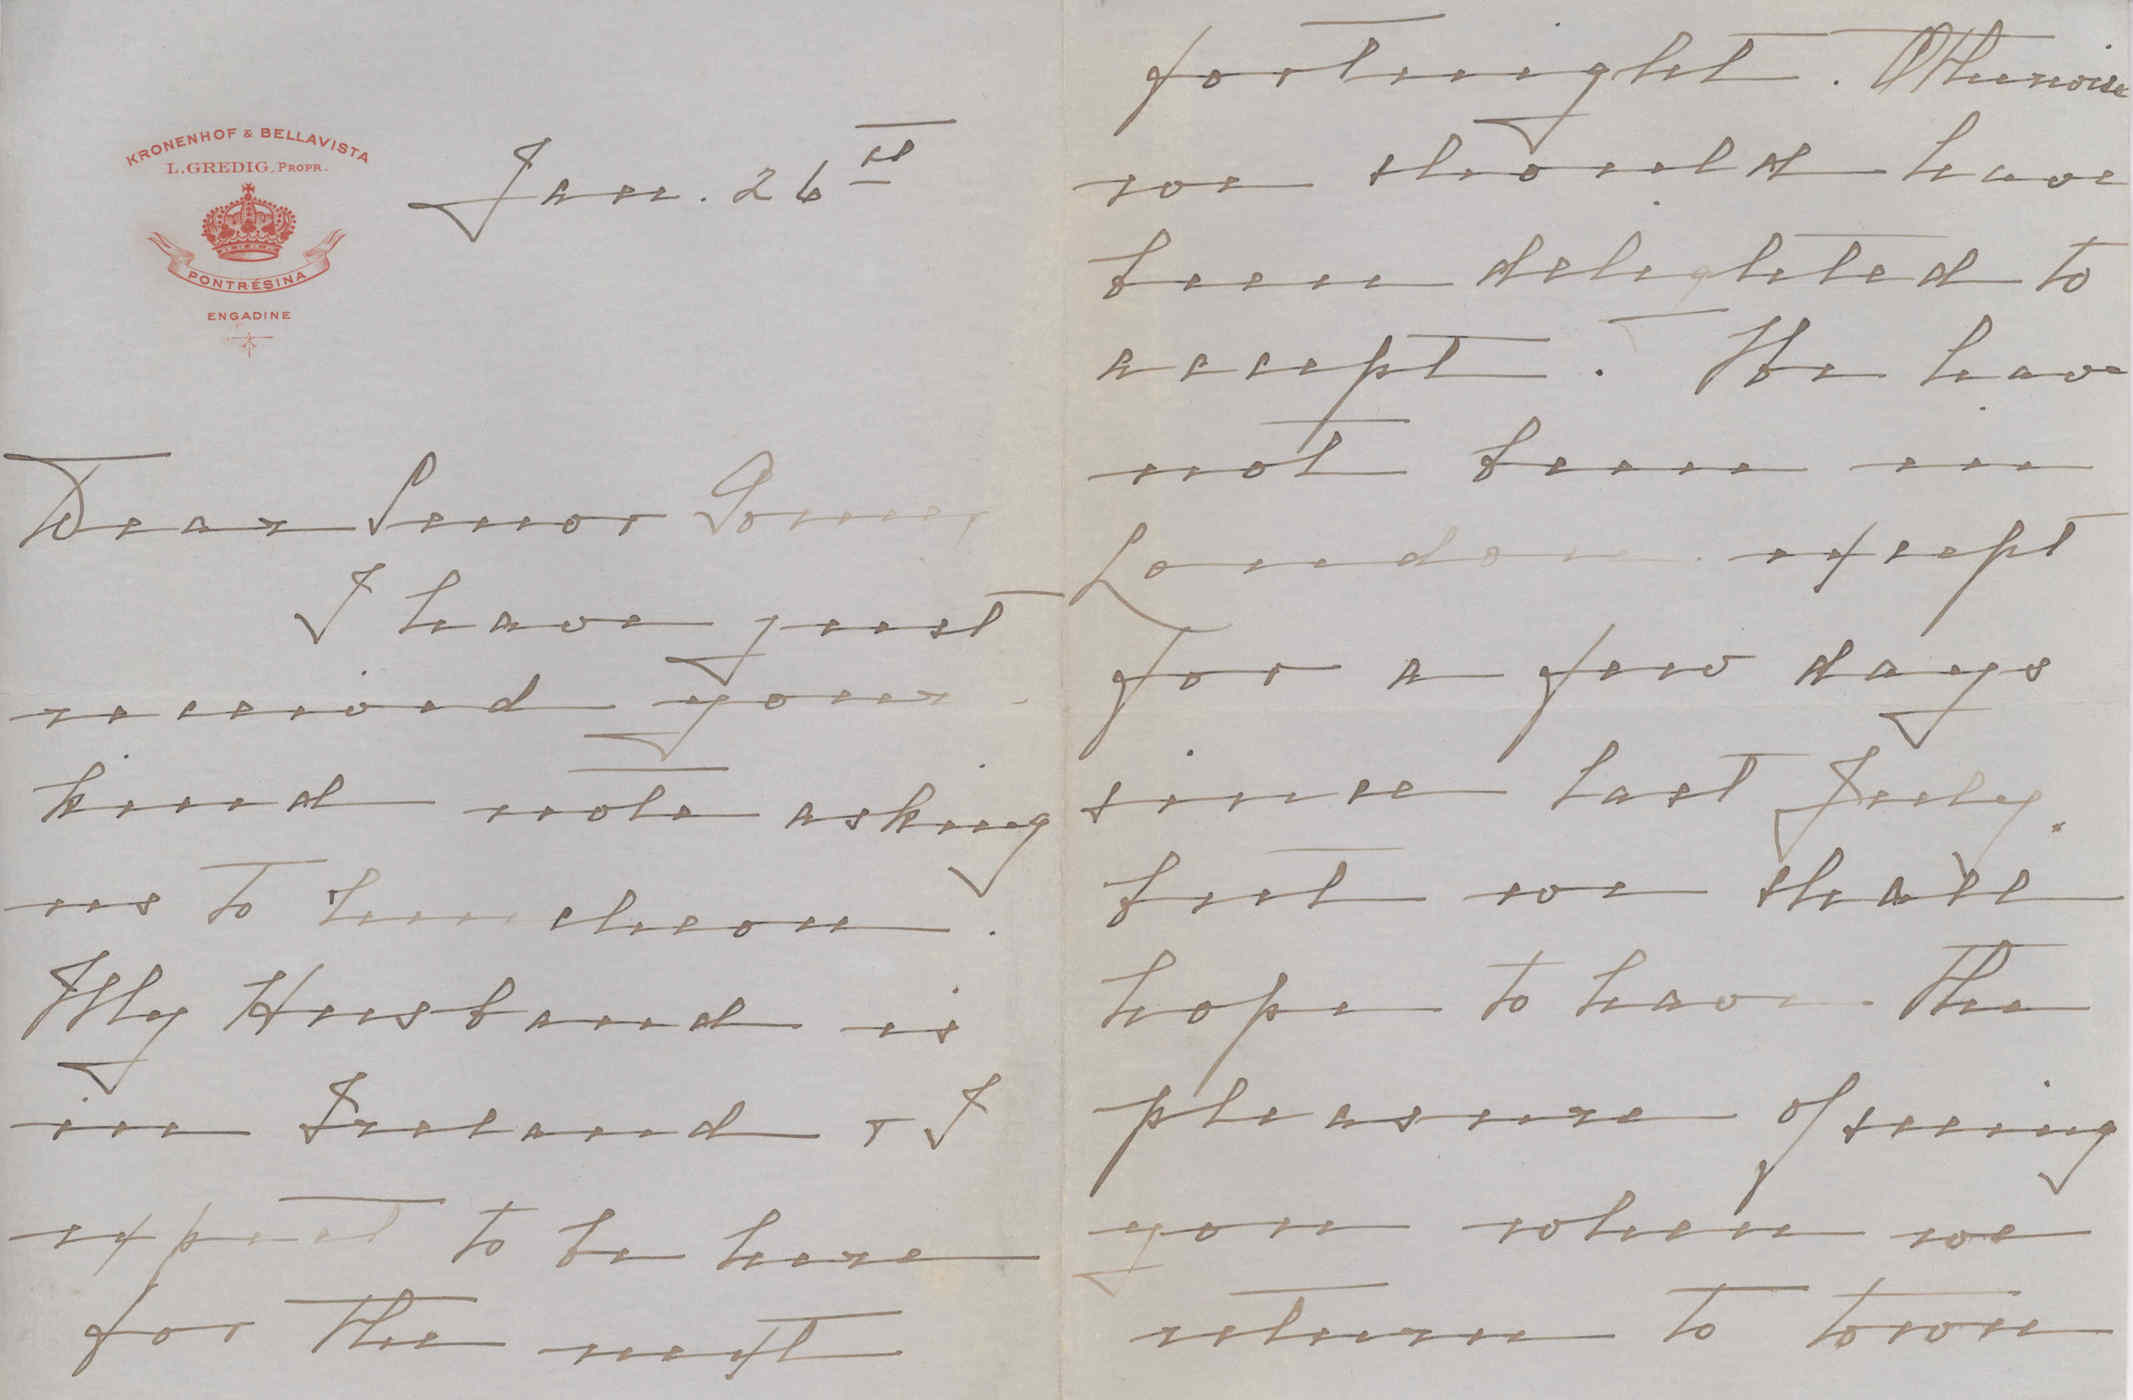 KRONENHOF & BELLAVISTA
L. GREDIG. PROPR.
PONTRÉSINA
ENGADINE
Jan. 26
Dear Senor
I have just
received your
kind note asking
us to luncheon.
My Husband is
in Ireland & I
expect to be here
for the next
fortnight. Otherwise
we should have
been delighted to
accept. We have
not been in
London except
for a few days
since last July.
but we shall
hope to have the
pleasure of seeing
you when we
return to town